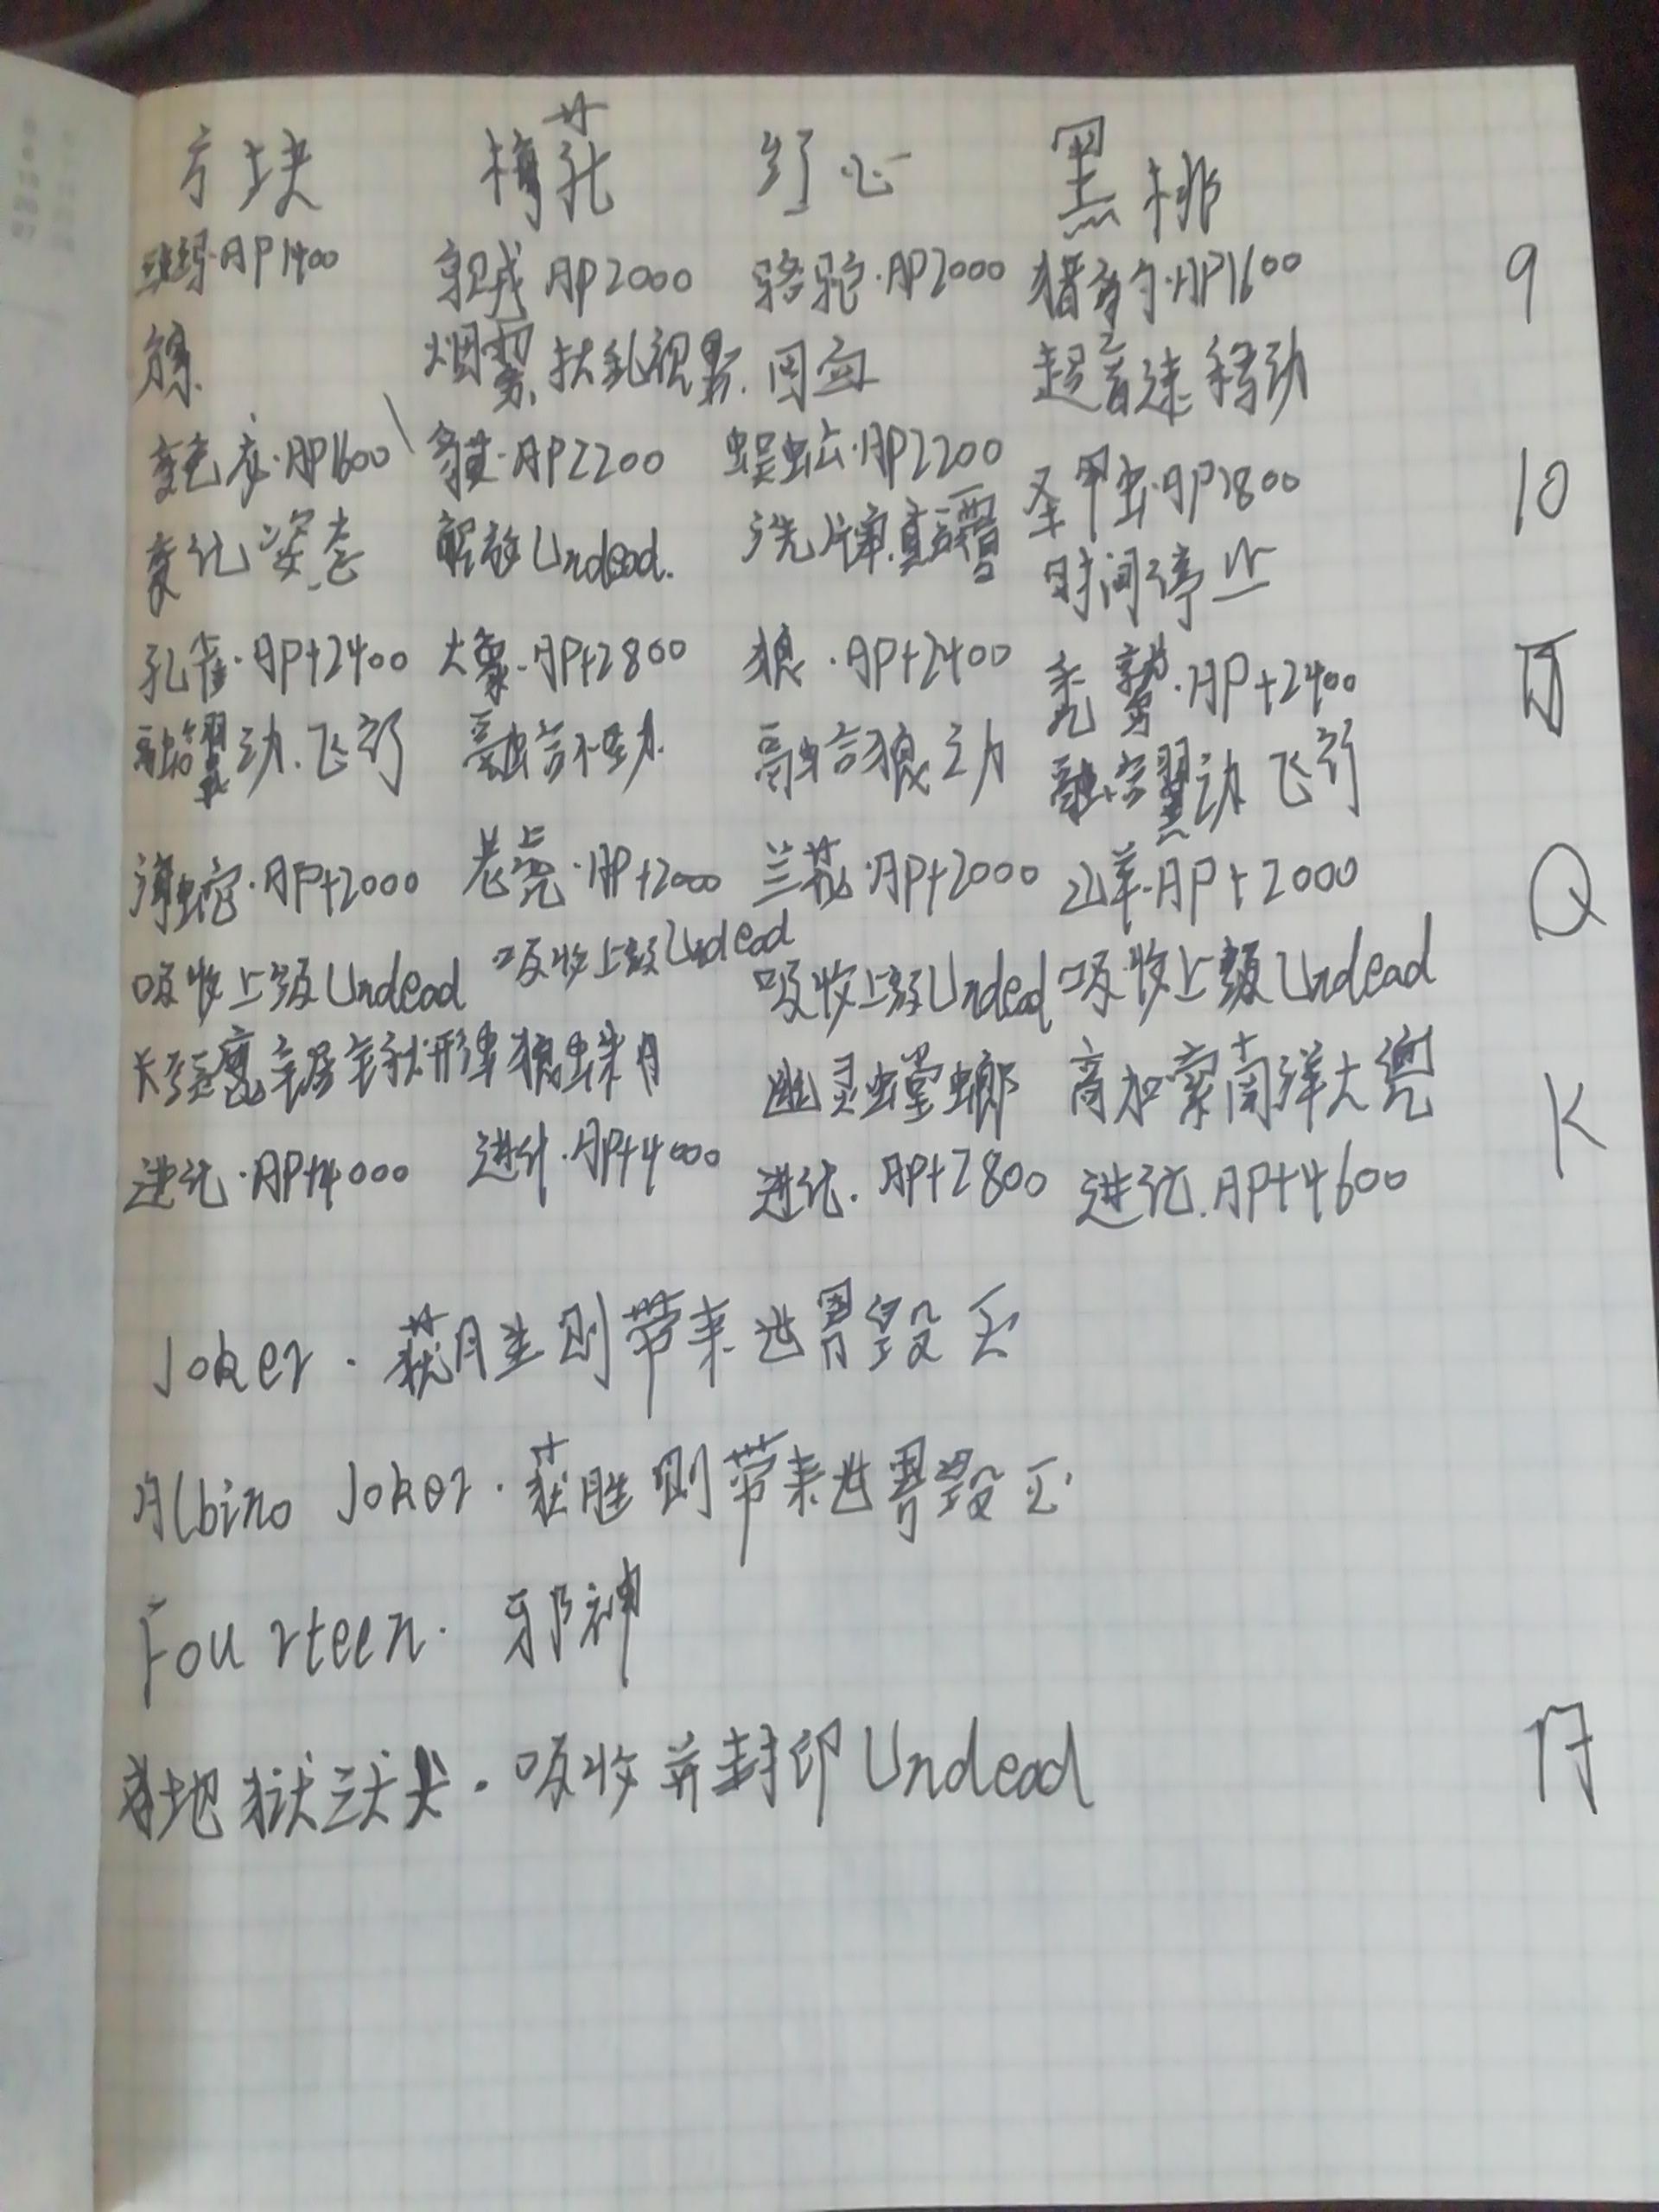 方块 梅花 红心 黑桃
斑马·AP1400 乌贼 AP2000 骆驼·AP2000 猎豹·AP1600 9
烟雾,扰乱视界. 回血 超音速移动
变色龙·AP1600 貘·AP2200 蜈蚣·AP2200 圣甲虫·AP1800 10
变化姿态 解放Undead. 洗牌, 时间停止
孔雀·AP+2400 大象·AP+2800 狼·AP+2400 秃鹫·AP+2400 J
融合翼动.飞行 融合不动 融合狼动 融合翼动 飞行
海蛇·AP+2000 老虎·AP+2000 兰花·AP+2000 山羊·AP+2000 Q
吸收上级Undead 吸收上级Undead 吸收上级Undead 吸收上级Undead
狼蛛 幽灵螳螂 高加索南洋大兜 K
进化·AP+4000 进化·AP+4000 进化.AP+2800 进化.AP+4600
Joker·获胜则带来世界毁灭
Albino Joker·获胜则带来世界毁灭.
Fourteen·邪神
地狱三头犬·吸收并封印Undead A